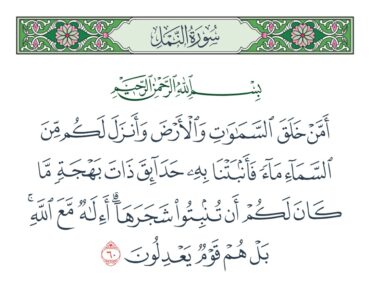 سُورَةُ النَّمْلِ
بِسْمِ اللَّهِ الرَّحْمَٰنِ الرَّحِيمِ
أَمَّنْ خَلَقَ السَّمَٰوَٰتِ وَالْأَرْضَ وَأَنزَلَ لَكُم مِّنَ
السَّمَآءِ مَآءً فَأَنۢبَتْنَا بِهِۦ حَدَآئِقَ ذَاتَ بَهْجَةٍ مَّا
كَانَ لَكُمْ أَن تُنۢبِتُوا۟ شَجَرَهَآ ۗ أَءِلَٰهٌ مَّعَ اللَّهِ ۚ
بَلْ هُمْ قَوْمٌ يَعْدِلُونَ ٦٠